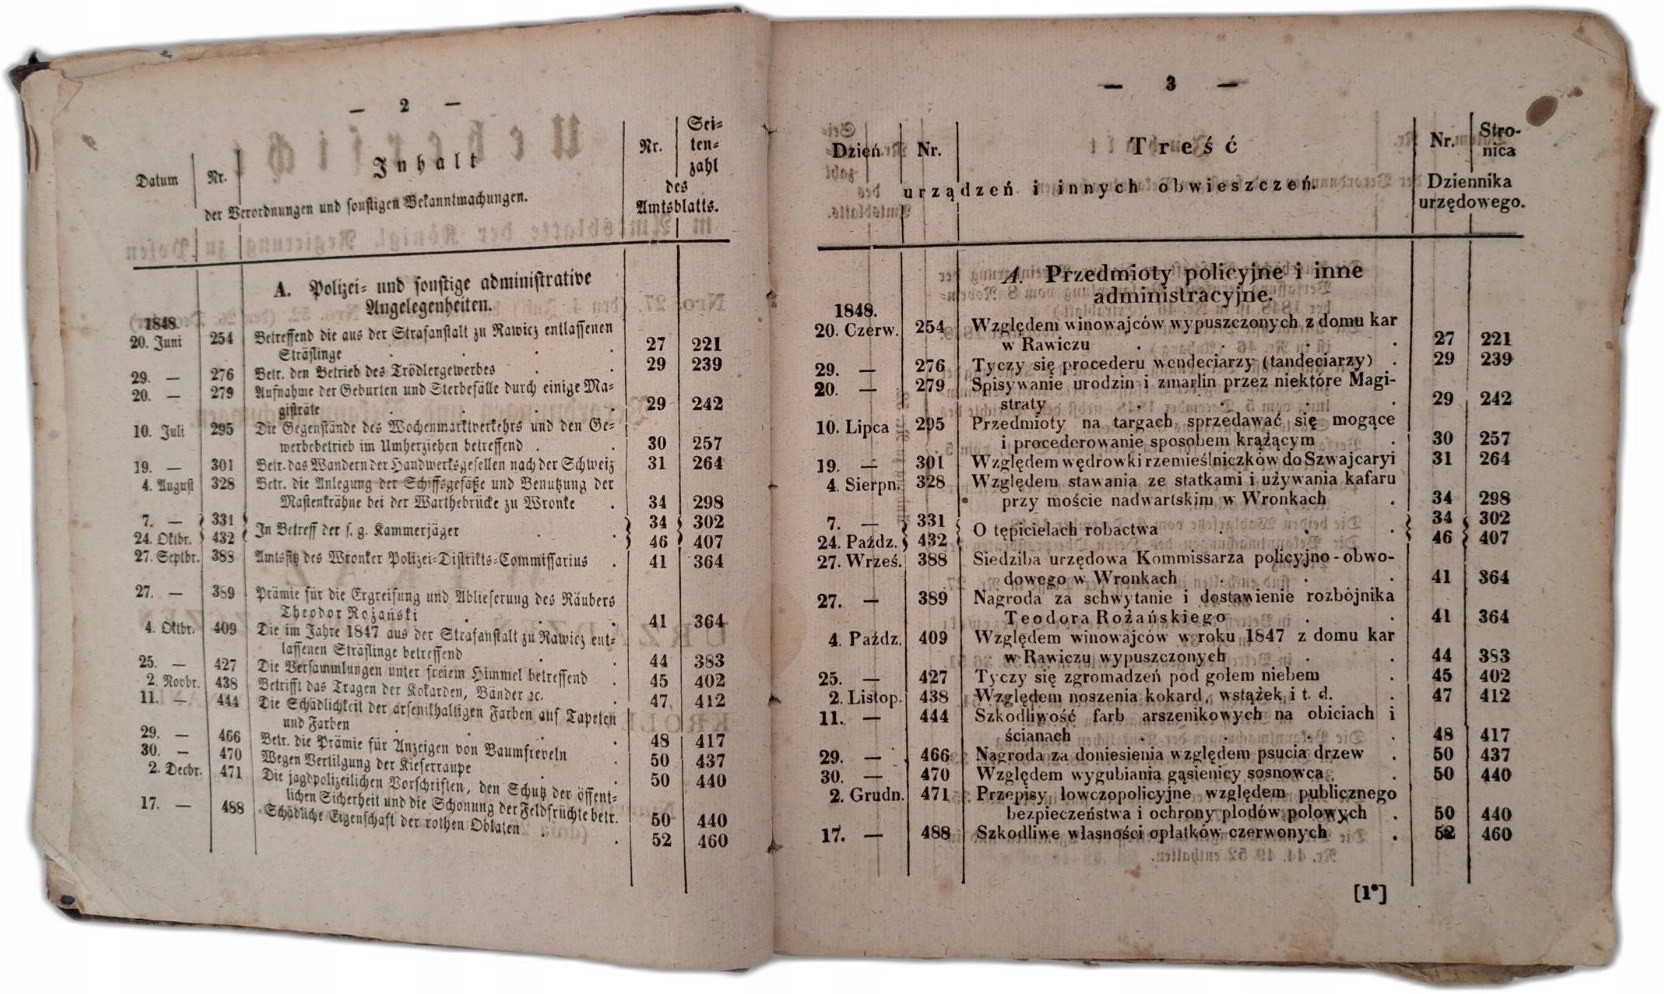 — 2 —
Datum Nr. Inhalt Nr. Sei-
ten-
zahl
der Verordnungen und sonstigen Bekanntmachungen. des
Amtsblatts.
A. Polizei- und sonstige administrative
Angelegenheiten.
1848.
20. Juni 254 Betreffend die aus der Strafanstalt zu Rawicz entlassenen
Sträflinge . . . 27 221
29. — 276 Betr. den Betrieb des Trödlergewerbes . . 29 239
20. — 279 Aufnahme der Geburten und Sterbefälle durch einige Ma-
gisträte . . . . 29 242
10. Juli 295 Die Gegenstände des Wochenmarktverkehrs und den Ge-
werbebetrieb im Umherziehen betreffend . . 30 257
19. — 301 Betr. das Wandern der Handwerksgesellen nach der Schweiz 31 264
4. August 328 Betr. die Anlegung der Schiffsgefäße und Benutzung der
Mastenkrähne bei der Warthebrücke zu Wronke . 34 298
7. — 331 34 302
In Betreff der s. g. Kammerjäger . .
24. Oktbr. 432 46 407
27. Septbr. 388 Amtssitz des Wronker Polizei-Distrikts-Commissarius . 41 364
27. — 389 Prämie für die Ergreifung und Ablieferung des Räubers
Theodor Rożański . . . 41 364
4. Oktbr. 409 Die im Jahre 1847 aus der Strafanstalt zu Rawicz ent-
lassenen Sträflinge betreffend . . 44 383
25. — 427 Die Versammlungen unter freiem Himmel betreffend . 45 402
2. Novbr. 438 Betrifft das Tragen der Kokarden, Bänder ꝛc. . 47 412
11. — 444 Die Schädlichkeit der arsenikhaltigen Farben auf Tapeten
und Farben . . . . 48 417
29. — 466 Betr. die Prämie für Anzeigen von Baumfreveln . 50 437
30. — 470 Wegen Vertilgung der Kieferraupe . . 50 440
2. Decbr. 471 Die jagdpolizeilichen Vorschriften, den Schutz der öffent-
lichen Sicherheit und die Schonung der Feldfrüchte betr. 50 440
17. — 488 Schädliche Eigenschaft der rothen Oblaten . . 52 460
— 3 —
Dzień Nr. Treść Nr. Stro-
nica
urządzeń i innych obwieszczeń. Dziennika
urzędowego.
A. Przedmioty policyjne i inne
administracyjne.
1848.
20. Czerw. 254 Względem winowajców wypuszczonych z domu kar
w Rawiczu . . . . 27 221
29. — 276 Tyczy się procederu wendeciarzy (tandeciarzy) . 29 239
20. — 279 Spisywanie urodzin i zmarlin przez niektóre Magi-
straty . . . . 29 242
10. Lipca 295 Przedmioty na targach sprzedawać się mogące
i procederowanie sposobem krążącym . 30 257
19. — 301 Względem wędrowki rzemieślniczków do Szwajcaryi 31 264
4. Sierpn. 328 Względem stawania ze statkami i używania kafaru
przy moście nadwartskim w Wronkach . 34 298
7. — 331 34 302
O tępicielach robactwa . .
24. Paźdz. 432 46 407
27. Wrześ. 388 Siedziba urzędowa Kommissarza policyjno-obwo-
dowego w Wronkach . . . 41 364
27. — 389 Nagroda za schwytanie i dostawienie rozbójnika
Teodora Rożańskiego . . 41 364
4. Paźdz. 409 Względem winowajców w roku 1847 z domu kar
w Rawiczu wypuszczonych . . 44 383
25. — 427 Tyczy się zgromadzeń pod gołem niebem . 45 402
2. Listop. 438 Względem noszenia kokard, wstążek i t. d. . 47 412
11. — 444 Szkodliwość farb arszenikowych na obiciach i
ścianach . . . . 48 417
29. — 466 Nagroda za doniesienia względem psucia drzew . 50 437
30. — 470 Względem wygubiania gąsienicy sosnowca . . 50 440
2. Grudn. 471 Przepisy łowczopolicyjne względem publicznego
bezpieczeństwa i ochrony plodów polowych . 50 440
17. — 488 Szkodliwe własności opłatków czerwonych . 52 460
[1*]